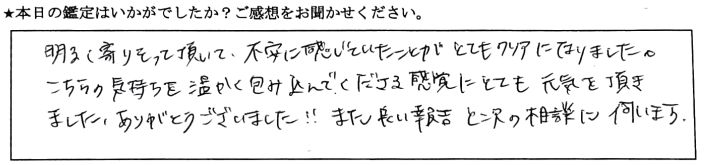 ★本日の鑑定はいかがでしたか？ご感想をお聞かせください。
明るく寄りそって頂いて、不安に感じていたことがとてもクリアになりました。
こちらの気持ちを温かく包み込んでくださる感覚にとても元気を頂き
ました。ありがとうございました!! また良い報告と次の相談に伺います.